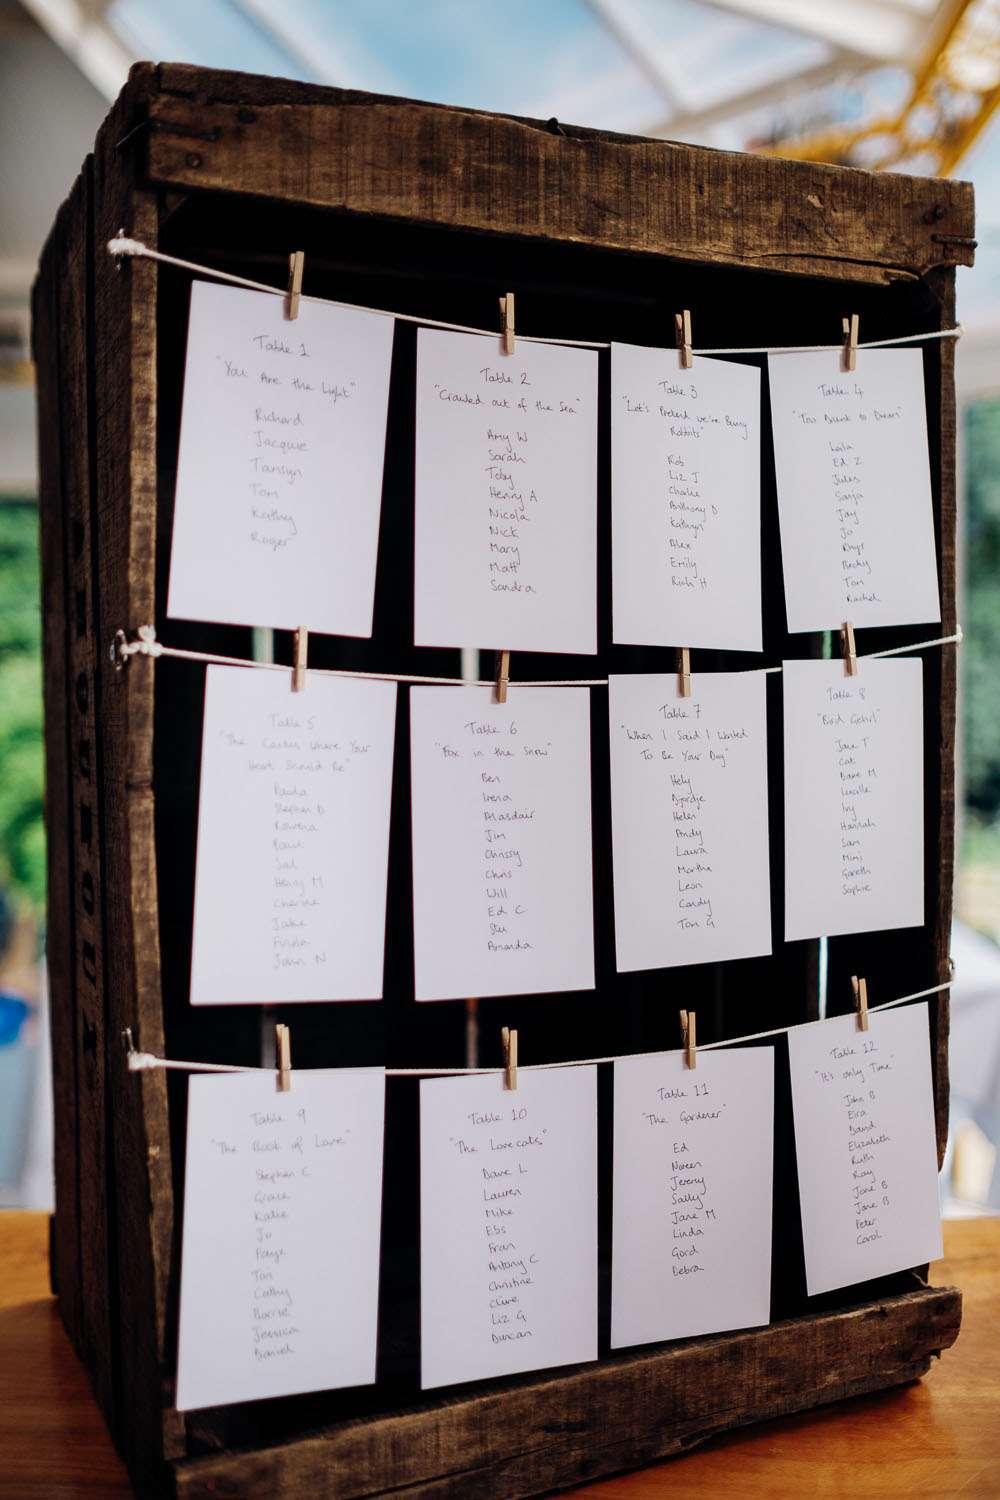 Table 1
"You Are the Light"
Richard
Jacquie
Tamsyn
Tom
Kathy
Roger
Table 2
"Crawled out of the Sea"
Amy W
Sarah
Toby
Henry A
Nicola
Nick
Mary
Matt
Sandra
Table 3
"Let's Pretend we're Bunny
Rabbits"
Rob
Liz J
Charlie
Anthony D
Kathryn
Alex
Emily
Rich H
Table 4
"Too Drunk to Dream"
Laila
Ed Z
Jules
Sonja
Jay
Jo
Rhys
Becky
Tom
Rachel
Table 5
"The Cactus Where Your
Heart Should Be"
Paula
Stephen D
Rowena
Paul
Sal
Henry M
Cherine
Jake
John N
Table 6
"Fox in the Snow"
Ben
Irena
Alasdair
Jim
Chrissy
Chris
Will
Ed C
Stu
Amanda
Table 7
"When I Said I Wanted
To Be Your Dog"
Hely
Djordje
Helen
Andy
Laura
Martha
Leon
Candy
Tom G
Table 8
"Bird Gehrl"
Jane T
Cat
Dave M
Lucille
Ivy
Hannah
Sam
Mimi
Gareth
Sophie
Table 9
"The Book of Love"
Stephen C
Grace
Katie
Jo
Faye
Ian
Cathy
Barrie
Jessica
Daniel
Table 10
"The Lovecats"
Dave L
Lauren
Mike
Ebs
Fran
Antony C
Christine
Clive
Liz G
Duncan
Table 11
"The Gardener"
Ed
Noreen
Jeremy
Sally
Jane M
Linda
Gord
Debra
Table 12
"It's only Time"
John B
Eira
David
Elizabeth
Ruth
Ray
Jane B
Jane B
Peter
Carol